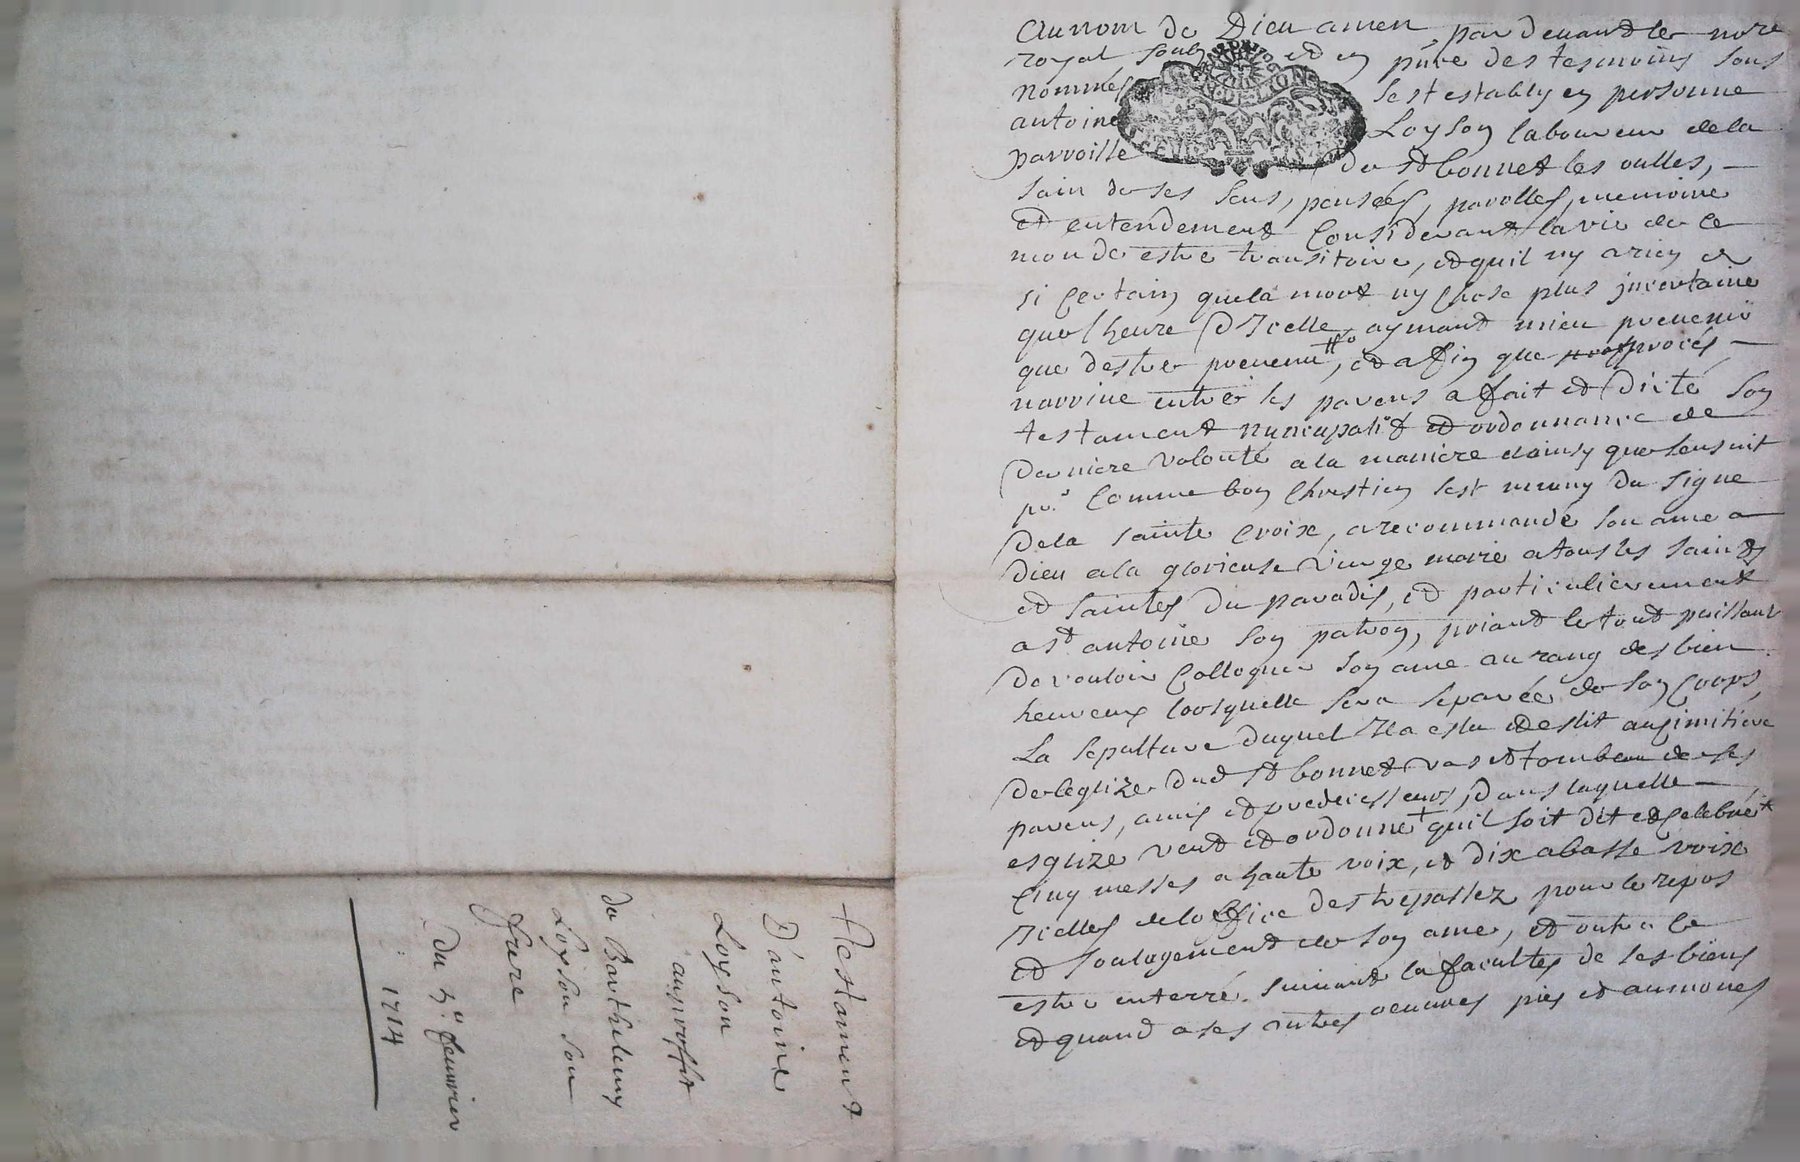 Testament
D'antoine
Loyson
au proffit
de Barthelemy
Loyson son
frere
Du 4e feuvrier
1714
Au nom de Dieu amen, par devant le nore
royal soub et en pnce des tesmoins sous
nommés sest estably en personne
antoine Loyson laboureur de la
parroisse de St bonnet les oulles,
sain de ses sens, pensées, parolles, memoire
et entendement Considerant la vie de ce
monde estre transitoire, et quil ny a rien de
si certain que la mort ny chose plus jncertaine
que lheure Dicelle aymant mieu prevenir
que destre prevenu, et affin que procés
narrive entre les parens a fait et Dicté son
testament nuncupatif et ordonnance de
derniere volonté a la maniere dainsy que sensuit
po. Comme bon Chrestien sest muny du signe
de la sainte Croix, a recommandé son ame a
Dieu a la glorieuse vierge marie a tous les saincts
et saintes du paradis, et particulierement
a st antoine son patron, priant le tout puissant
de vouloir Colloquer son ame au rang des bien
heureux lorsquelle sera separée de son Corps,
La sepulture duquel Jl a eslu et eslit au simitiere
de leglize dud St bonnet vas et tombeau de ses
parens, amis et predecesseurs, Dans laquelle
esglize veut et ordonne quil soit dit et Celebré
Cinq messes a haute voix, et dix a basse voix
Jcelles de loffice des trepassez pour le repos
et soulagement de son ame, et outre ce
estre enterré suivant la facultés de ses biens
et quand a ses autres oeuvres pies et aumones